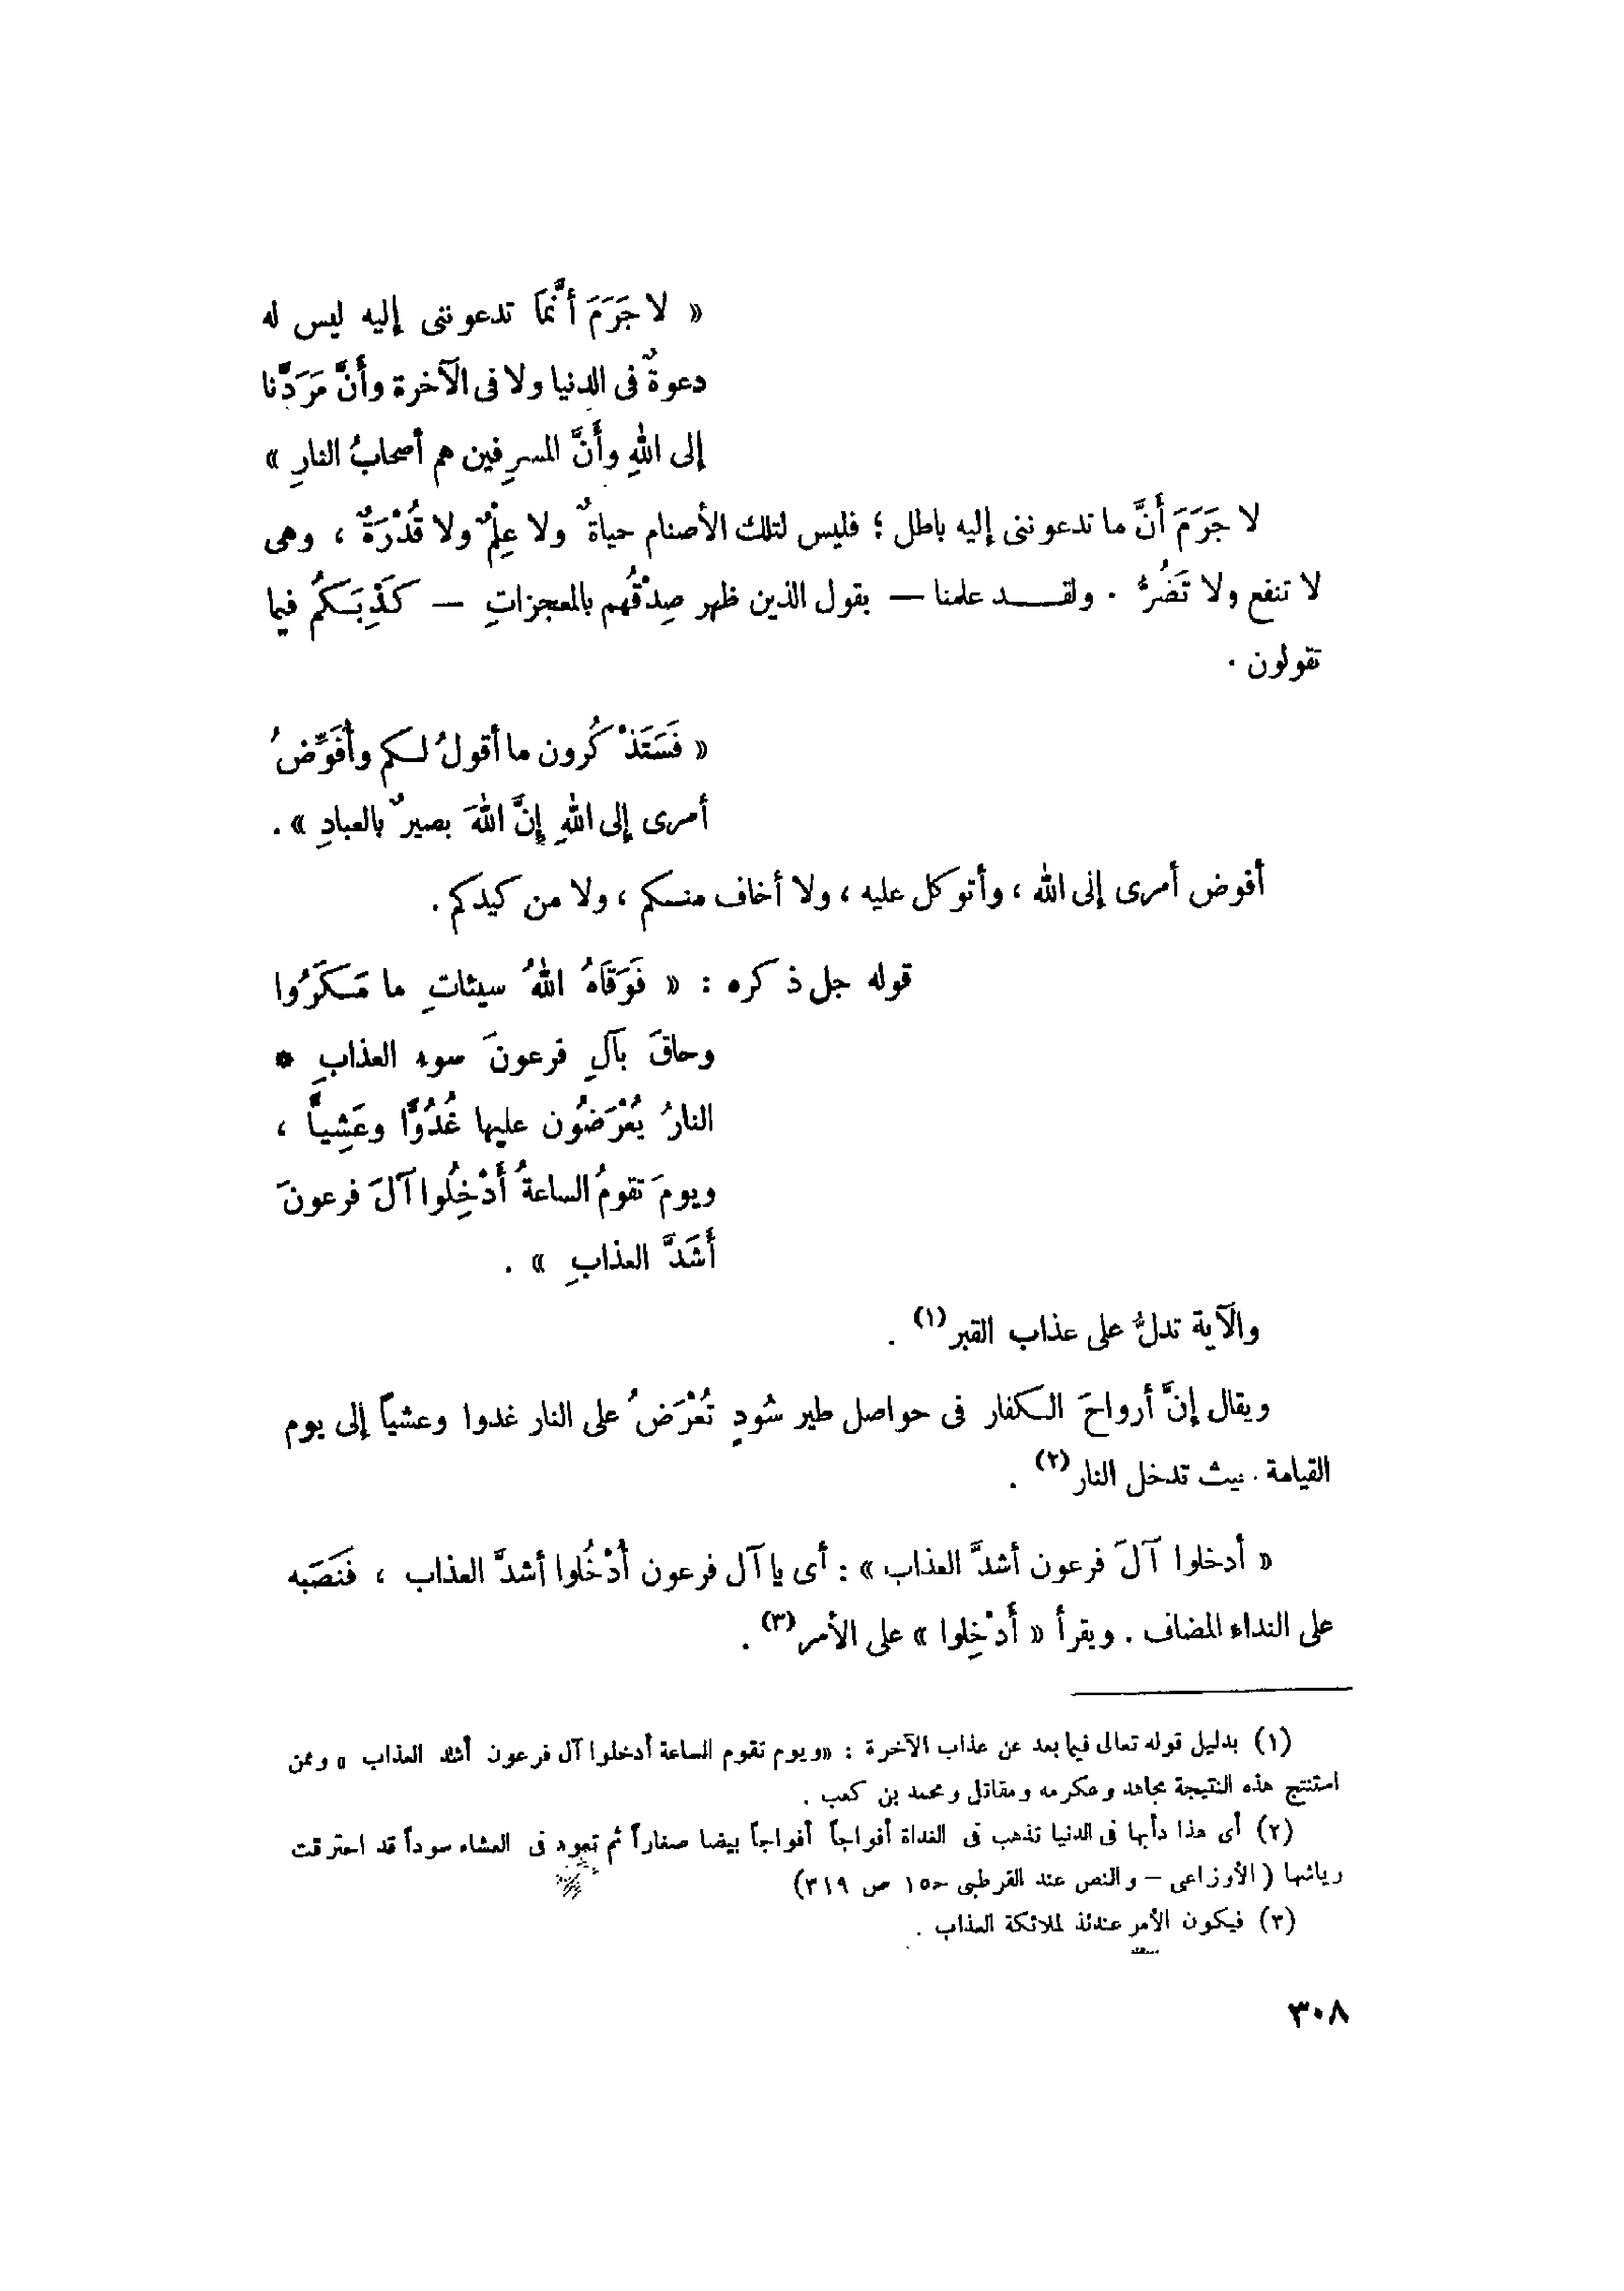 « لا جَرَمَ أنَّمَا تدعوننى إليه ليس له
دعوةٌ فى الدنيا ولا فى الآخرة وأَنَّ مَرَدَّنا
إلى اللهِ وأَنَّ المسرِفين هم أصحابُ النارِ »
لا جَرَمَ أَنَّ ما تدعوننى إليه باطل ؛ فليس لتلك الأصنام حياةٌ ولا عِلْمٌ ولا قُدْرَةٌ ، وهى
لا تنفع ولا تَضُرُّ . ولقد علمنا — بقول الذين ظهر صِدْقُهم بالمعجزاتِ — كَذِبَكم فيما
تقولون .
« فَسَتَذْكُرون ما أقولُ لكم وأُفَوِّضُ
أمرى إلى اللهِ إنَّ اللهَ بصيرٌ بالعبادِ » .
أفوض أمرى إلى الله ، وأتوكل عليه ، ولا أخاف منكم ، ولا من كيدكم .
قوله جل ذكره : « فَوَقَاهُ اللهُ سيئاتِ ما مَكَرُوا
وحاقَ بآلِ فرعونَ سوء العذابِ *
النارُ يُعْرَضُون عليها غُدُوًّا وعَشِياًّ ،
ويومَ تقومُ الساعةُ أَدْخِلُوا آلَ فرعونَ
أَشَدَّ العذابِ » .
والآية تدلُّ على عذاب القبر (١) .
ويقال إنَّ أرواحَ الكفار فى حواصل طير سُودٍ تُعْرَضُ على النار غدوا وعشياً إلى يوم
القيامة تدخل النار (٢) .
« أدخلوا آلَ فرعون أشدَّ العذاب » : أى يا آل فرعون أُدْخُلوا أشدَّ العذاب ، فَنَصَبه
على النداء المضاف . ويقرأ « أَدْخِلوا » على الأمر (٣) .
(١) بدليل قوله تعالى فيما بعد عن عذاب الآخرة : «ويوم تقوم الساعة أدخلوا آل فرعون أشد العذاب » وممن
استنتج هذه النتيجة مجاهد وعكرمه ومقاتل ومحمد بن كعب .
(٢) أى هذا دأبها فى الدنيا تذهب فى الغداة أفواجاً أفواجاً بيضا صغاراً ثم تعود فى العشاء سوداً قد احترقت
رياشها (الأوزاعى – والنص عند القرطبى ح١٥ ص ٣١٩)
(٣) فيكون الأمر عندئذ لملائكة العذاب .
٣٠٨